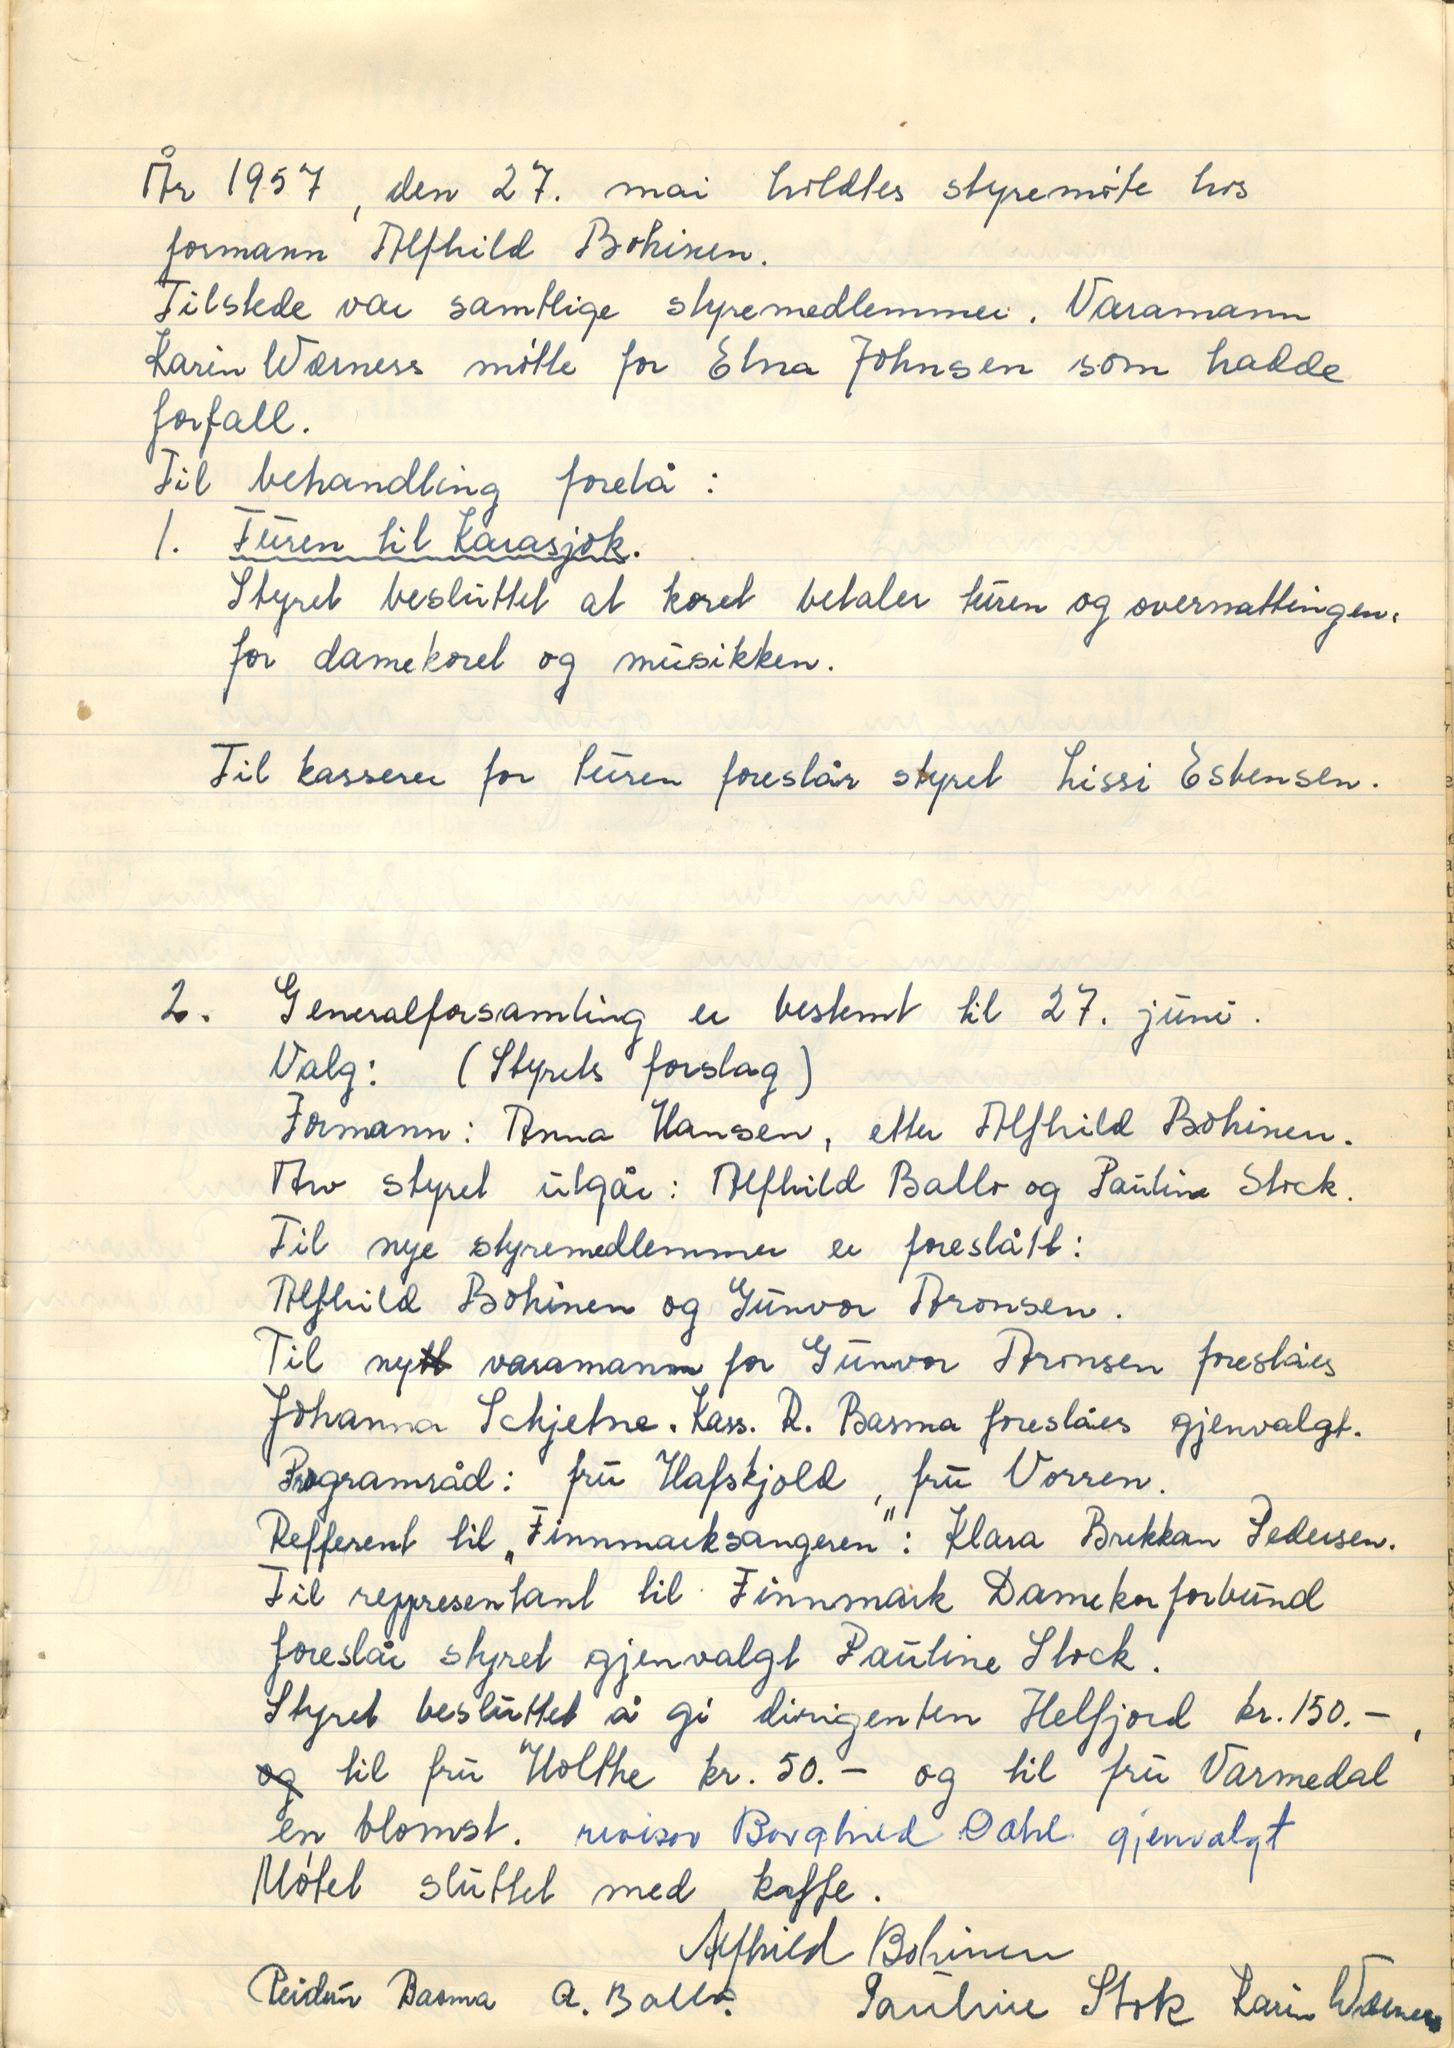 År 1957, den 27. mai holdtes styremøte hos
formann Alfhild Bohinen.
Tilstede var samtlige styremedlemmer. Varamann
Karin Wærness møtte for Elna Johnsen som hadde
forfall.
Til behandling forelå:
1. Turen til Karasjok.
Styret besluttet at koret betaler turen og overnattingen.
for damekoret og musikken.
Til kasserer for turen foreslår styret Lissi Estensen.
2. Generalforsamling er bestemt til 27. juni.
Valg: (Styrets forslag)
Formann: Anna Hansen, etter Alfhild Bohinen.
Av styret utgår: Alfhild Ballo og Pauline Stock.
Til nye styremedlemmer er foreslått:
Alfhild Bohinen og Gunvor Aronsen.
Til ny varamann for Gunvor Aronsen foreslåes
Johanna Schjetne. Kass. R. Basma foreslåes gjenvalgt.
Programråd: fru Hafskjold, fru Vorren.
Refferent til „Finnmarksangeren": Klara Brekkan Pedersen.
Til reppresentant til Finnmark Damekorforbund
foreslår styret gjenvalgt Pauline Stock.
Styret besluttet å gi dirigenten Helfjord kr. 150.-,
og til fru Holthe kr. 50.- og til fru Varmedal
en blomst. revisor Borghild Dahl gjenvalgt
Møtet sluttet med kaffe.
Alfhild Bohinen
Reidun Basma A. Ballo. Pauline Stok Karin Wærness